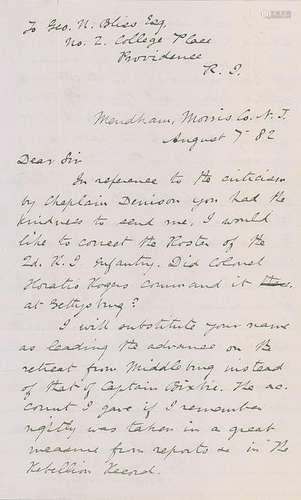 To Geo. N. Bliss Esq.
No. 2. College Place
Providence
R. I.
Mendham, Morris Co. N. J.
August 7" 82
Dear Sir
In reference to the criticism
by Chaplain Denison you had the
kindness to send me, I would
like to correct the Roster of the
2d. R. I. Infantry. Did Colonel
Horatio Rogers command it
at Gettysbug?
I will substitute your name
as leading the advance on the
retreat from Middlebug instead
of that of Captain Bixbie. The ac-
count I gave if I remember
rightly was taken in a great
measure from reports as in "The
Rebellion Record.